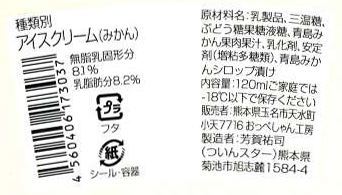 種類別
アイスクリーム(みかん)
無脂乳固形分
8.1%
乳脂肪分8.2%
4560406173037
プラ
フタ
紙
シール・容器
原材料名:乳製品、三温糖、
ぶどう糖果糖液糖、青島み
かん果肉果汁、乳化剤、安定
剤(増粘多糖類)、青島みか
んシロップ漬け
内容量:120mlご家庭では
-18℃以下で保存ください
販売者:熊本県玉名市天水町
小天7716 おっぺしゃん工房
製造者:芳賀祐司
(ついんスター)熊本県
菊池市旭志麓1584-4